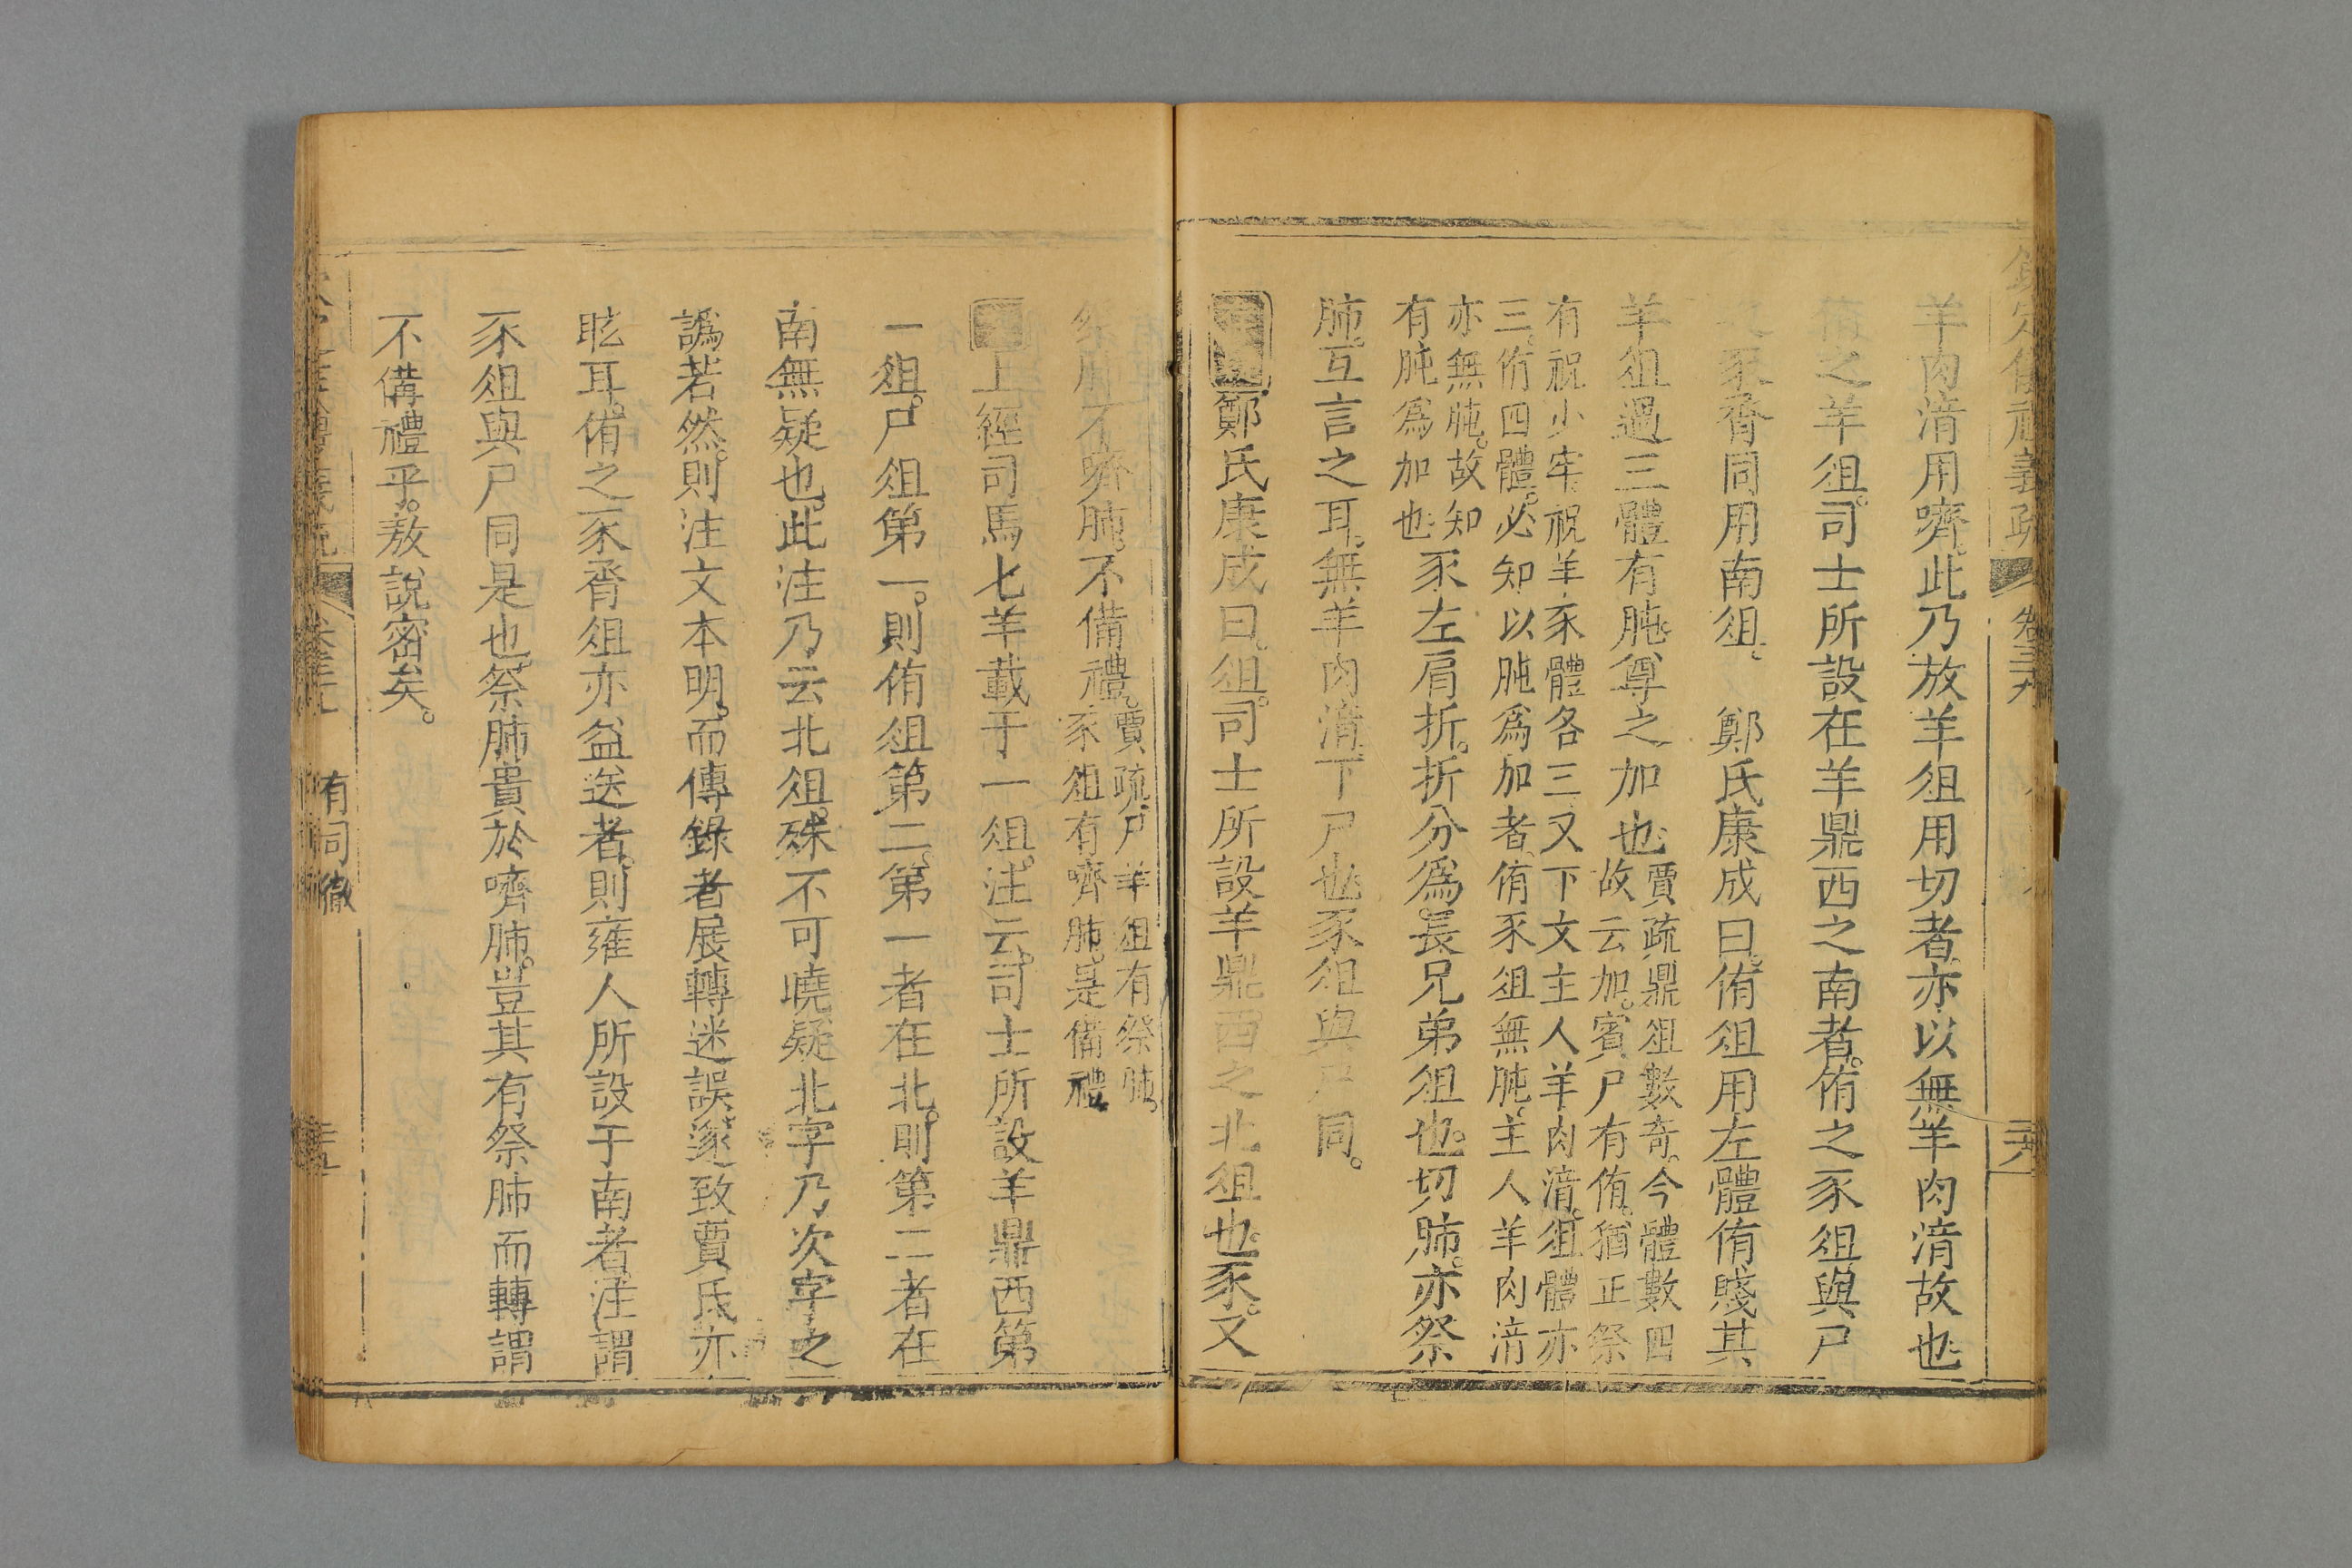 儀禮義疏
羊肉湇用嚌此乃放羊俎用切者亦以無羊肉湇故也
侑之羊俎。司士所設在羊鼎西之南者。侑之豕俎與尸
豕脀同用南俎。 鄭氏康成曰。侑俎用左體侑賤其
羊俎過三體有肫尊之加也
賈疏鼎俎數奇。今體數四
故云加。賓尸有侑。猶正祭
有祝少牢祝羊豕體各三又下文主人羊肉湇。俎體亦
三。侑四體。必知以肫爲加者侑豕俎無肫。主人羊肉湇
亦無肫。故知
有肫爲加也
豕左肩折。折分爲長兄弟俎也。切肺。亦祭
肺。互言之耳。無羊肉湇下尸也。豕俎與尸同。
鄭氏康成曰。俎。司士所設羊鼎西之北俎也。豕。又
祭肺不嚌肺。不備禮。
賈疏尸羊俎有祭肺。
豕俎有嚌肺。是備禮
上經司馬匕羊載于一俎。注云。司士所設羊鼎西第
一俎。尸俎第一。則侑俎第二。第一者在北。則第二者在
南無疑也。此注乃云北俎。殊不可曉疑北字乃次字之
譌若然。則注文本明。而傳錄者展轉迷誤遂致賈氏亦
眩耳。侑之豕脀俎亦益送者。則雍人所設于南者。注謂
豕俎與尸同是也。祭肺貴於嚌肺。豈其有祭肺而轉謂
不備禮乎。敖說密矣。
有司徹